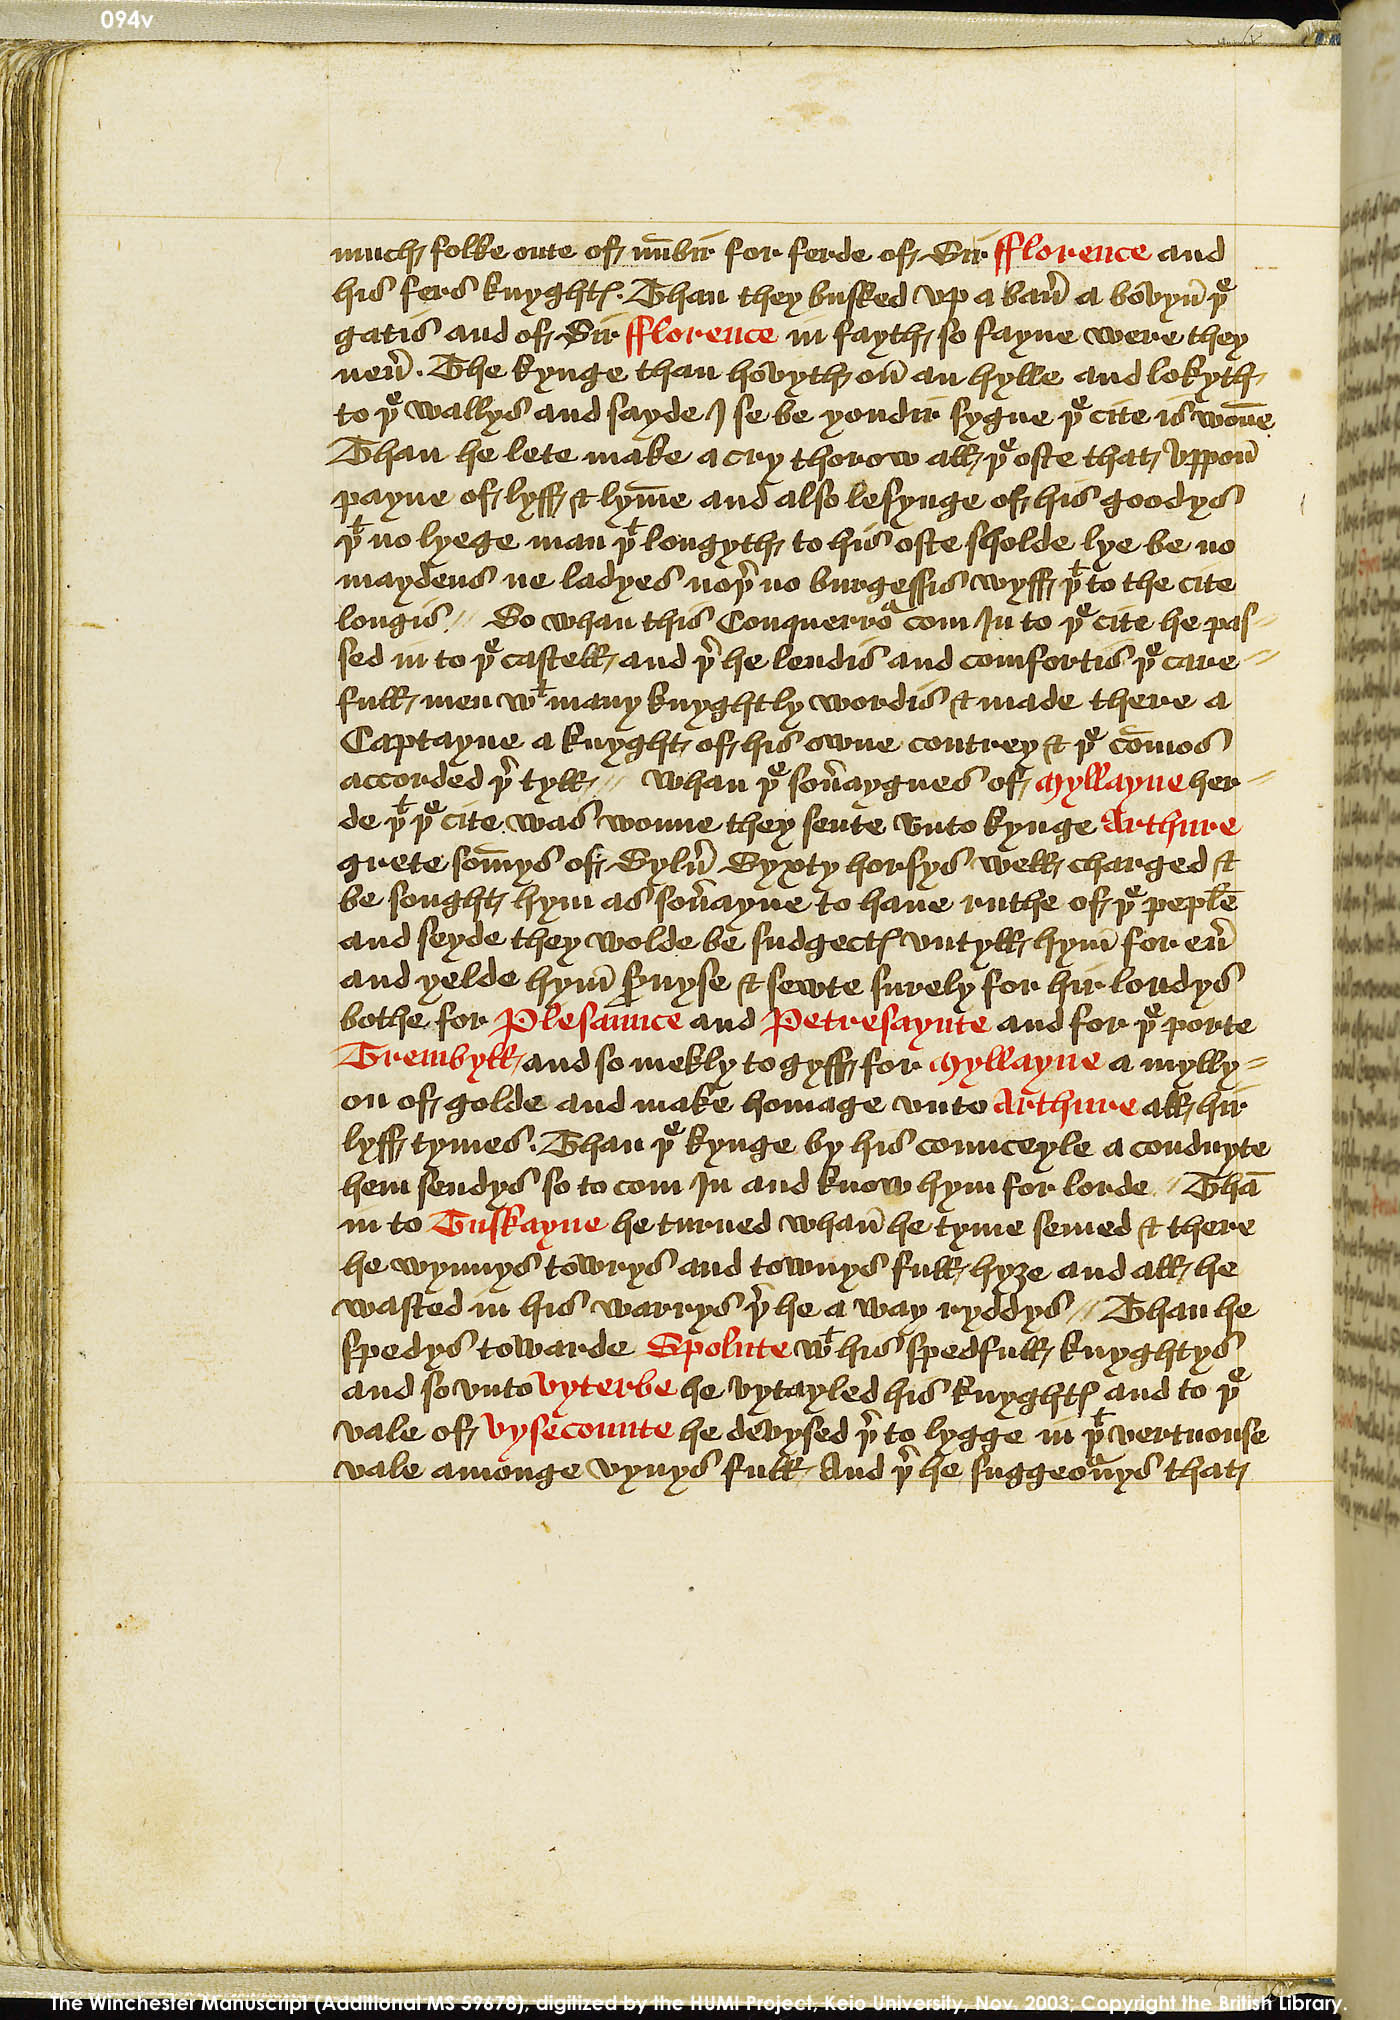 094v
much folke oute of nūbir for ferde of Sir fflorence and
his fers knyghtꝭ. Than they busked vp a baner̄ a bovyn̄ þe
gatis and of Sir fflorence in fayth so fayne were they
neu̾. The kynge than hovyth on̄ an hylle and lokyth
to þe wallys and sayde I se be yondir sygne þe cite is wōne
Than he lete make a cry thorow all þe oste that vppon̄
payne of lyff & lym̄e and also lesynge of his goodys
þt no lyege man þt longyth to his oste sholde lye be no
maydens ne ladyes noþ̾ no burgessis wyff þt to the cite
longis // So whan this Conquerroʳ com In to þe cite he pas=
sed in to þe castell and þ̾ he lendis and comfortis þe care=
full men wt many knyghtly wordis & made there a
Captayne a knyght of his owne contrey & þe com̄ons
accorded þ̾ tyll // whan þe sou̾aygnes of Myllayne her=
de þt þe cite was wonne they sente vnto kynge Arthure
grete som̄ys of Sylu̾ Syxty horsys well charged &
be sought hym as sou̾ayne to haue ruthe of þe peple
and seyde they wolde be sudgectꝭ vntyll hym̄ for eu̾
and yelde hym̄ s̾uyse & sewte surely for hir londys
bothe for Plesaunce and Petresaynte and for þe porte
Trembyll and so mekly to gyff for Myllayne a mylly=
on of golde and make homage vnto Arthure all hir
lyff tymes. Than þe kynge by his counceyle a conduyte
hem sendys so to com In and know hym for lorde // Thā
in to Tuskayne he turned whan̄ he tyme semed & there
he wynnys towrys and townys full hyȝe and all he
wasted in his warrys þ̾ he a way ryddys // Than he
spedys towarde Spolute wt his spedfull knyghtys
and so vnto vyterbe he vytayled his knyghtꝭ and to þe
vale of vysecounte he devysed þ̾ to lygge in þt vertuouse
vale amonge vynys full And þ̾ he suggeoʳnys that
The Winchester Manuscript (Additional MS 59678), digitized by the HUMI Project, Keio University, Nov. 2003; Copyright the British Library.